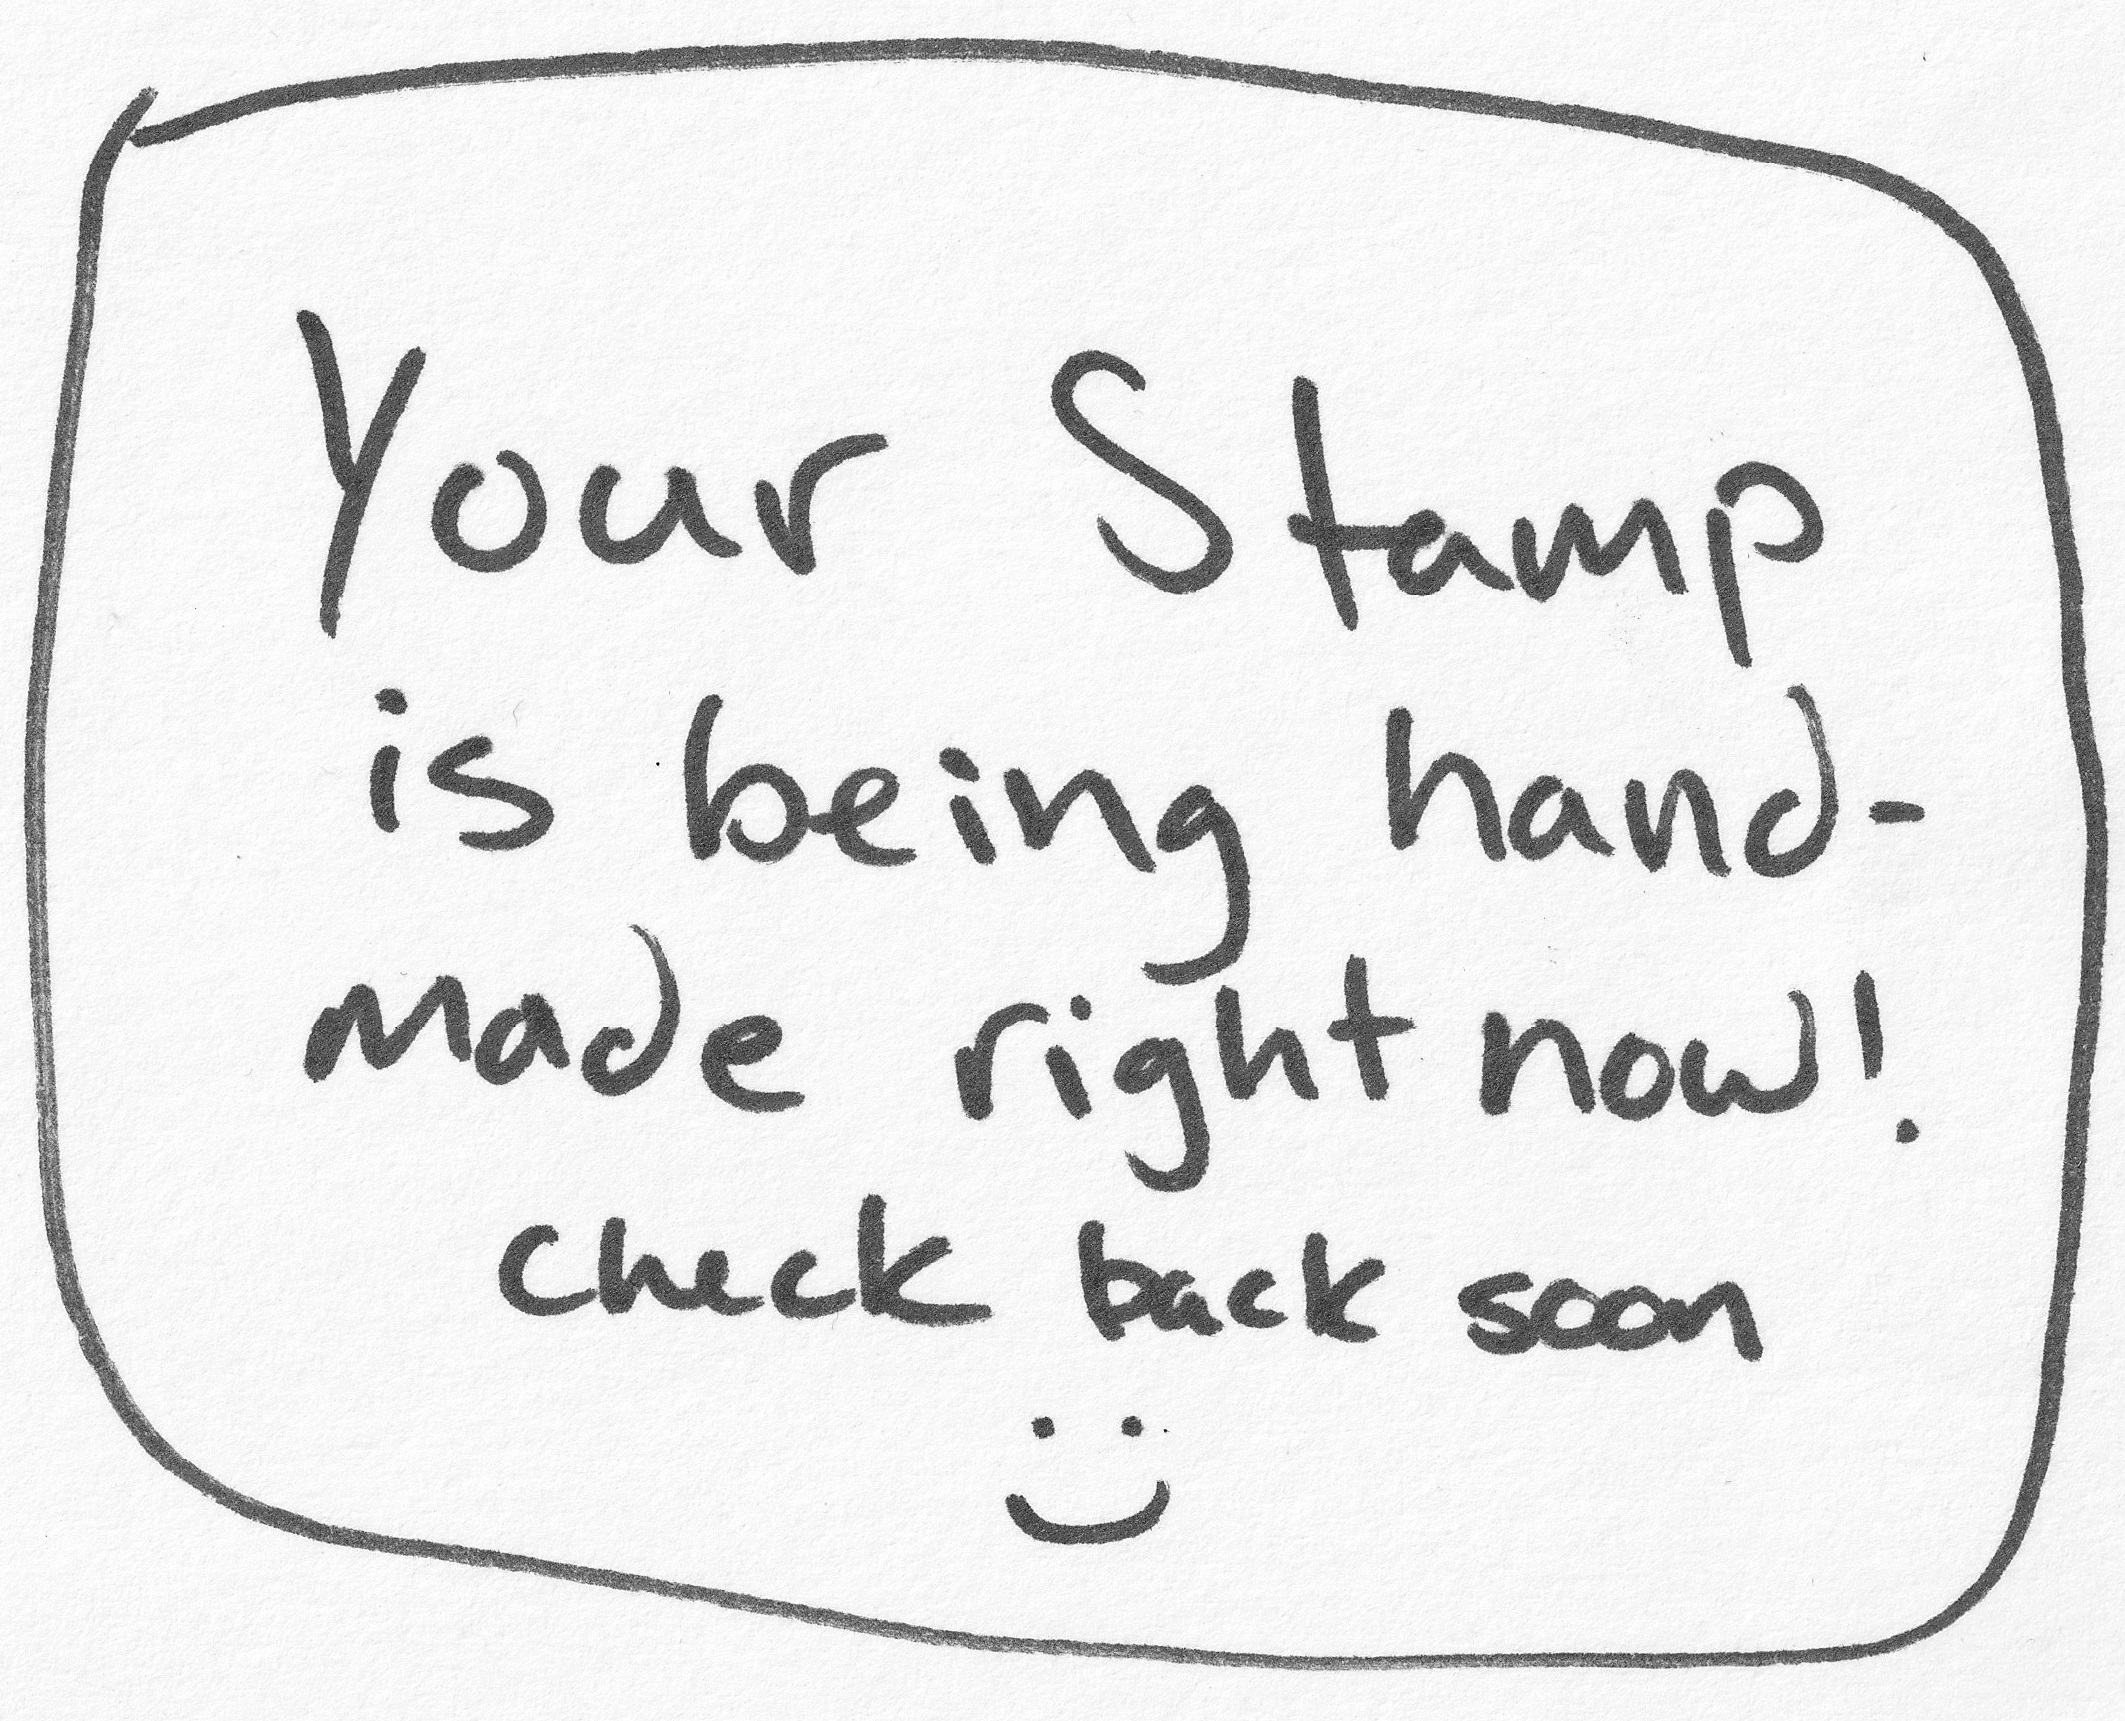 Your Stamp
is being hand-
made right now!
check back soon